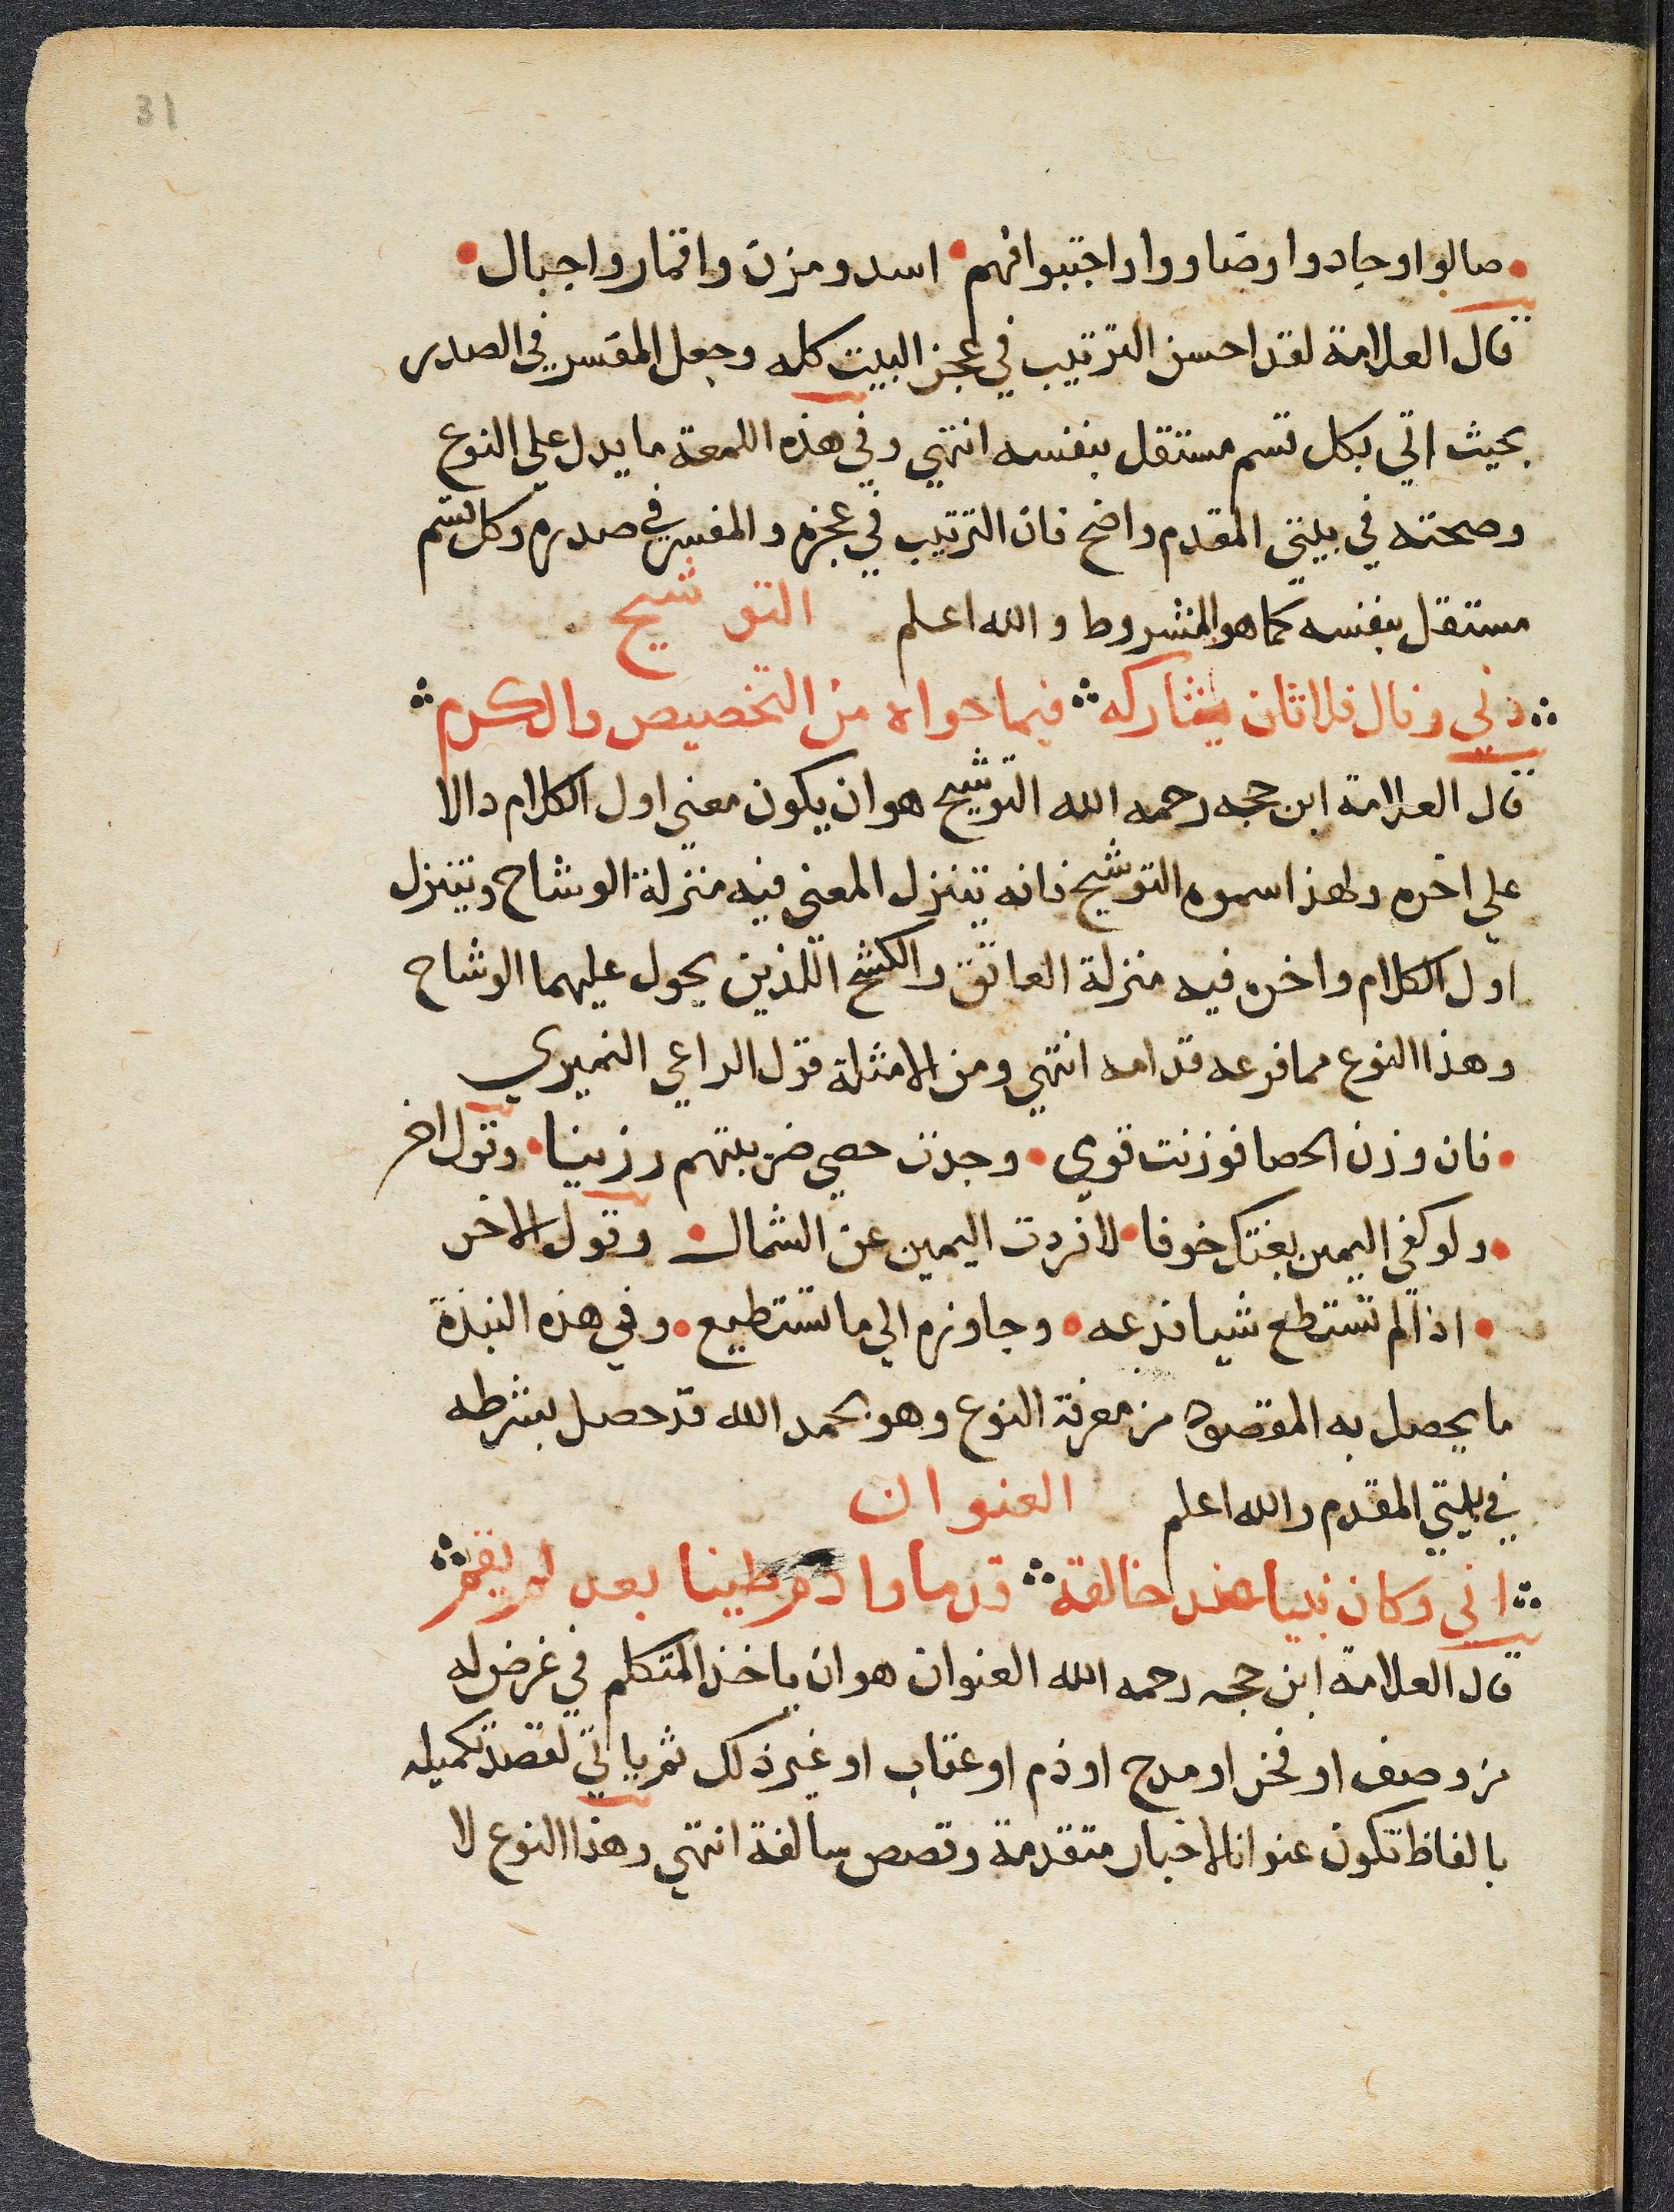 31
صالوا وجادوا وضاووا واجتبوا فهم اسد ومزن واقمار واجبال
قال العلامة لقد احسن الترتيب في عجز البيت كله وجعل المفسر في الصدر
بحيث اتي بكل قسم مستقل بنفسه انتهي وفي هذه اللمعة ما يدل علي النوع
وصحته في بيتي المقدم واضح فان الترتيب في عجزه والمفسر في صدره وكل قسم
مستقل بنفسه كما هو المشروط والله اعلم التوشيح
دني ونال فلا ثان يشاركه فيما حواه من التخصيص والكرم
قال العلامة ابن حجه رحمه الله التوشيح هو ان يكون معني اول الكلام دالا
علي اخره ولهذا سموه التوشيح فانه يتنزل المعني فيه منزلة الوشاح ويتنزل
اول الكلام واخره فيه منزلة العاتق والكشح اللذين يحول عليهما الوشاح
وهذا النوع مما فرعه قدامه انتهي ومن الامثلة قول الراعي النميري
فان وزن الحصا فوزنت قومي وجدت حصي ضريبتهم رزينا وقول اخر
ولو كفي اليمين بغتك خوفا لافردت اليمين عن الشمال وقول الاخر
اذا لم تستطع شيا فدعه وجاوزه الي ما تستطيع وفي هذه النبذة
ما يحصل به المقصود من معرفة النوع وهو بحمد الله قد حصل بشرطه
في بيتي المقدم والله اعلم العنوان
اني وكان نبيا عند خالقه قدما وادم طينا بعد لم يقم
قال العلامة ابن حجه رحمه الله العنوان هو ان ياخذ المتكلم في غرض له
من وصف او فخر او مدح او ذم او عتاب او غير ذلك ثم ياتي لقصد تكميله
بالفاظ تكون عنوانا لاخبار متقدمة وقصص سالفة انتهي وهذا النوع لا